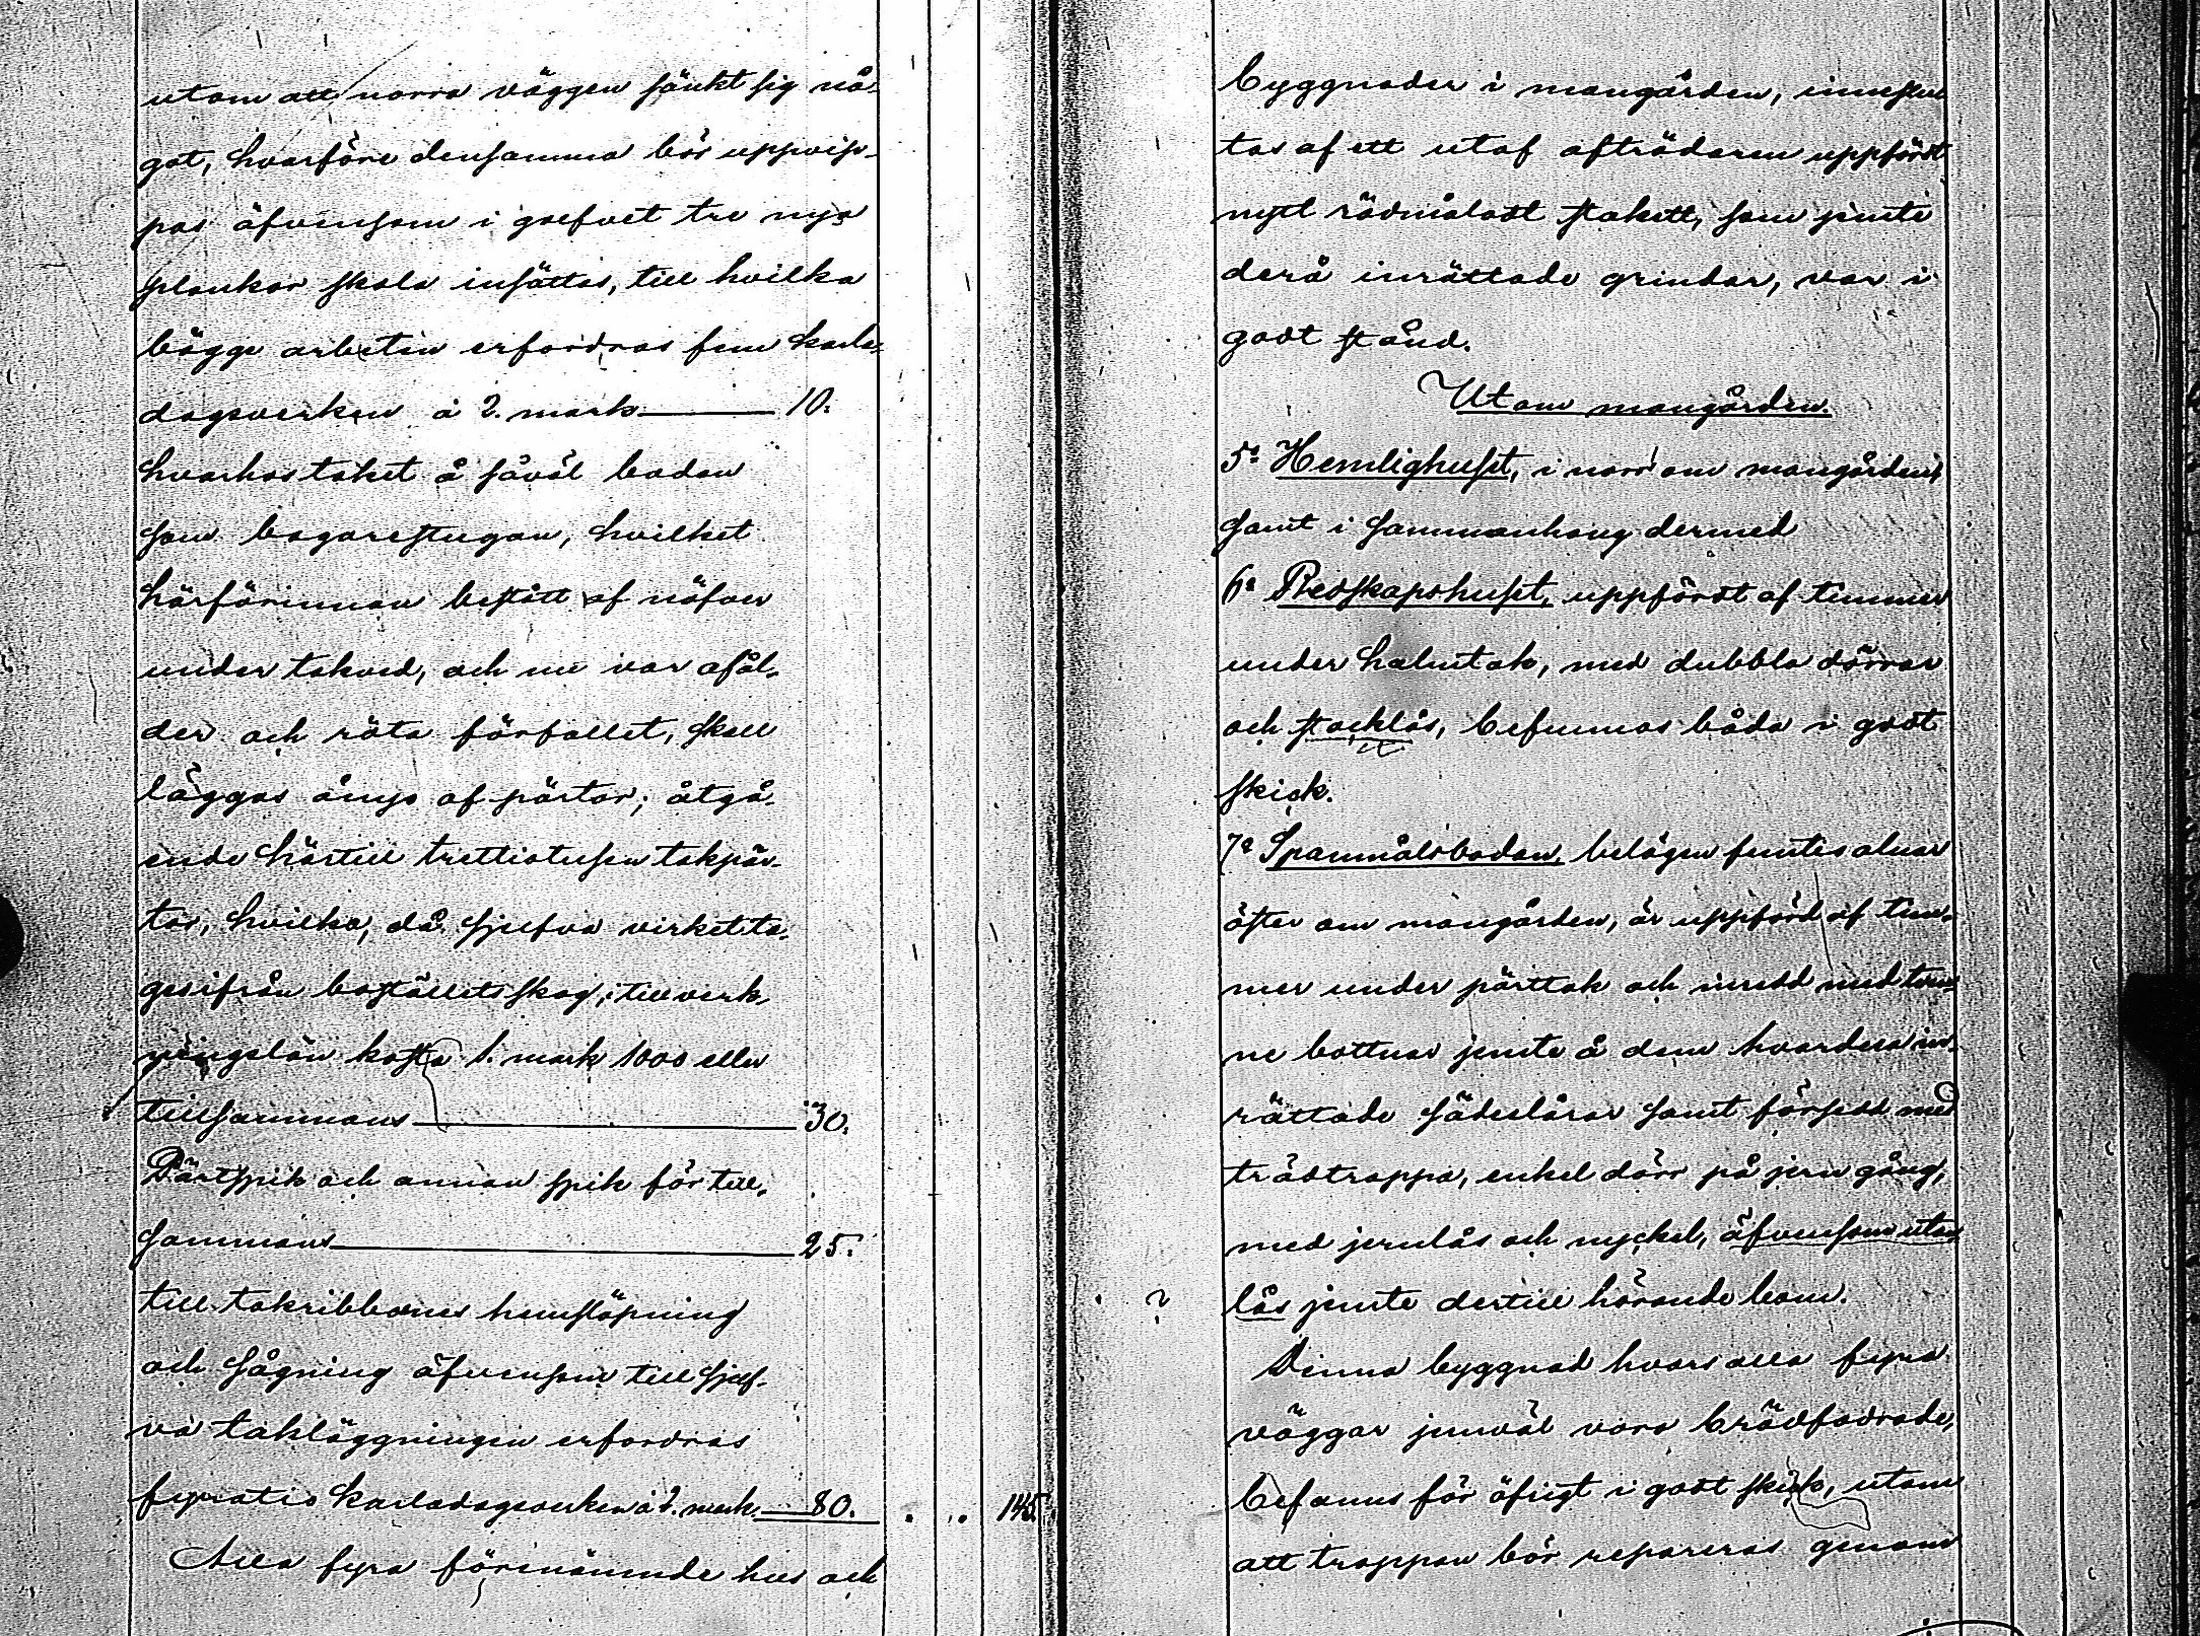 utom att norra väggen sänkt sig nå-
got, hvarföre densamma bör uppvip-
pas äfvensom i golfvet tre nya
plankor skola insättas, till hvilka
bägge arbeten erfordras fem karls-
dagsverken à 2. mark 10.
hvarhos taket å såväl boden
som bagarestugan, hvilket
härförinnan bestått af näfver
under takved, och nu var af ål-
der och röta förfallet, skall
läggas ånyo af pärtor; åtgå-
ende härtill trettiotusen takpär-
tor, hvilka, då sjelfva virket ta-
ges ifrån boställets skog, i tillverk-
ningslön kosta 1. mark 1000 eller
tillsammans 30.
Pärtspik och annan spik för till-
sammans 25.
till takribbornes hemsläpning
och sågning äfvensom till sjelf-
va takläggningen erfordras
fyratio karlsdagsverken à 2. mark. 80. 145.
Alla fyra förenämnde hus och
byggnader i mangården, inneslu-
tas af ett utaf afträdaren uppfördt
nytt rödmåladt stakett, som jemte
derå inrättade grindar, var i
godt stånd.
Utom mangården.
5º Hemlighuset, i norr om mangården,
samt i sammanhang dermed
6º Redskapshuset, uppfördt af timmer
under halmtak, med dubbla dörrar
och stocklås, befunnos båda i godt
skick.
7º Spannmålsboden, belägen femtio alnar
öster om mangården, är uppförd af tim-
mer under pärttak och inredd med tven-
ne bottnar jemte å dem hvardera in-
rättade sädeslårar samt försedd med
trädtrappa, enkel dörr på jern gång,
med jernlås och nyckel, äfvensom utan-
? lås jemte dertill hörande bom.
Denna byggnad hvars alla fyra
väggar jemväl voro brädfodrade,
befanns för öfrigt i godt skick, utom
att trappan bör repareras genom